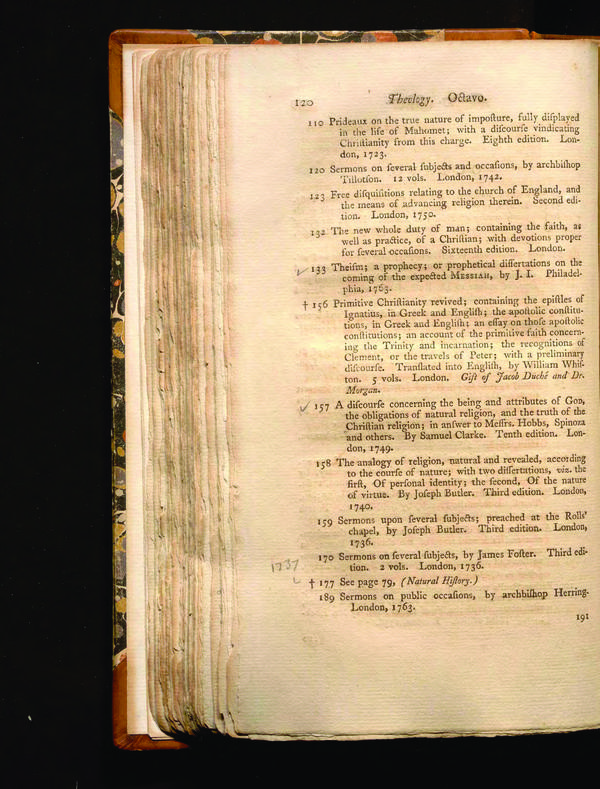 120 Theology. Octavo.
110 Prideaux on the true nature of impoſture, fully diſplayed
in the life of Mahomet; with a diſcourſe vindicating
Chriſtianity from this charge. Eighth edition. Lon-
don, 1723.
120 Sermons on ſeveral ſubjects and occaſions, by archbiſhop
Tillotſon. 12 vols. London, 1742.
123 Free diſquiſitions relating to the church of England, and
the means of advancing religion therein. Second edi-
tion. London, 1750.
132 The new whole duty of man; containing the faith, as
well as practice, of a Chriſtian; with devotions proper
for ſeveral occaſions. Sixteenth edition. London.
✓ 133 Theiſm; a prophecy; or prophetical diſſertations on the
coming of the expected MESSIAH, by J. I. Philadel-
phia, 1763.
† 156 Primitive Chriſtianity revived; containing the epiſtles of
Ignatius, in Greek and Engliſh; the apoſtolic conſtitu-
tions, in Greek and Engliſh; an eſſay on thoſe apoſtolic
conſtitutions; an account of the primitive faith concern-
ing the Trinity and incarnation; the recognitions of
Clement, or the travels of Peter; with a preliminary
diſcourſe. Tranſlated into Engliſh, by William Whiſ-
ton. 5 vols. London. Gift of Jacob Duché and Dr.
Morgan.
✓ 157 A diſcourſe concerning the being and attributes of GOD,
the obligations of natural religion, and the truth of the
Chriſtian religion; in anſwer to Meſſrs. Hobbs, Spinoza
and others. By Samuel Clarke. Tenth edition. Lon-
don, 1749.
158 The analogy of religion, natural and revealed, according
to the courſe of nature; with two diſſertations, viz. the
firſt, Of perſonal identity; the ſecond, Of the nature
of virtue. By Joſeph Butler. Third edition. London,
1740.
159 Sermons upon ſeveral ſubjects; preached at the Rolls'
chapel, by Joſeph Butler. Third edition. London,
1736.
170 Sermons on ſeveral ſubjects, by James Foſter. Third edi-
1737 tion. 2 vols. London, 1736.
† 177 See page 79, (Natural Hiſtory.)
189 Sermons on public occaſions, by archbiſhop Herring.
London, 1763.
191